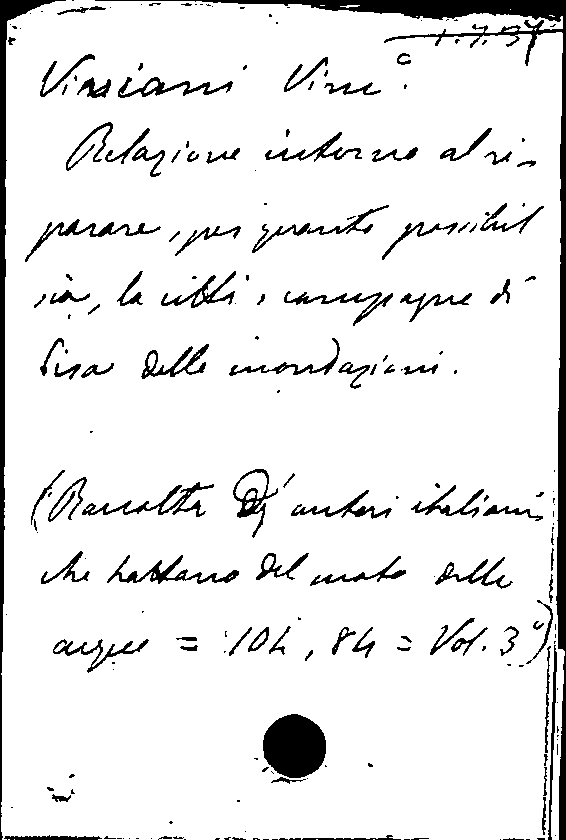 1.7.37
Viviani Vinc.o
Relazione intorno al ri-
parare, per quanto possibil
sia, la città e campagne di
Pisa dalle inondazioni.
(Raccolta D' autori italiani
che trattano del moto delle
acque = 10h, 84 = Vol. 3°)